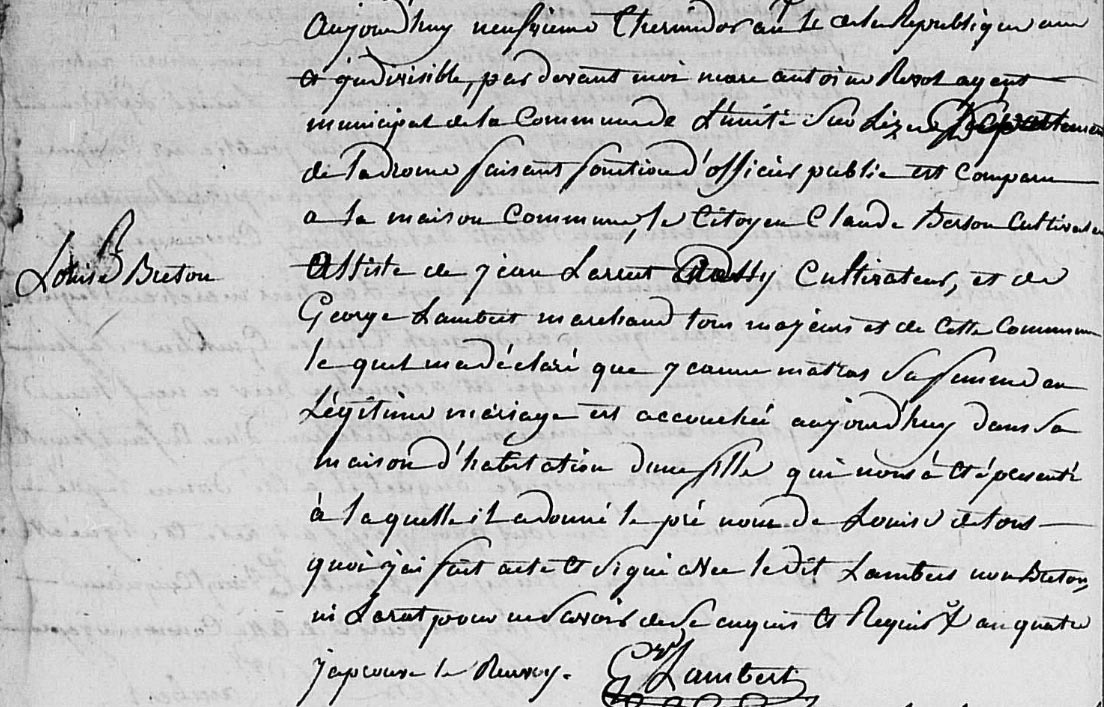 aujourd'huy neufvieme Thermidor an 4e de la Republique une
et jndivisible, par devant moi marc antoine agent
municipal de la Commune de L'unité Sur Lizere Departement
de la drome faisant fonction d'officier public est comparu
a la maison Commune, le Citoyen Claude Berton Cultivateur
Louise Breton
Assisté de jean Cultivateur, et de
George Lambert marchand tous majeurs et de cette Commune
le quel m'a déclaré que jeanne matras Sa femme en
Légitime mériage est accouchéé aujourd'huy dans Sa
maison d'habitation d'une fille qui nous à été présenté
à laquelle il a donné le pré nom de Louise de tous
quoi j'ai fait acte et Signé avec le dit Lambert non Breton,
ni pour ne Savoir de ce enquis et Requis an quatre
japrouve le Renvoy.
G Lambert